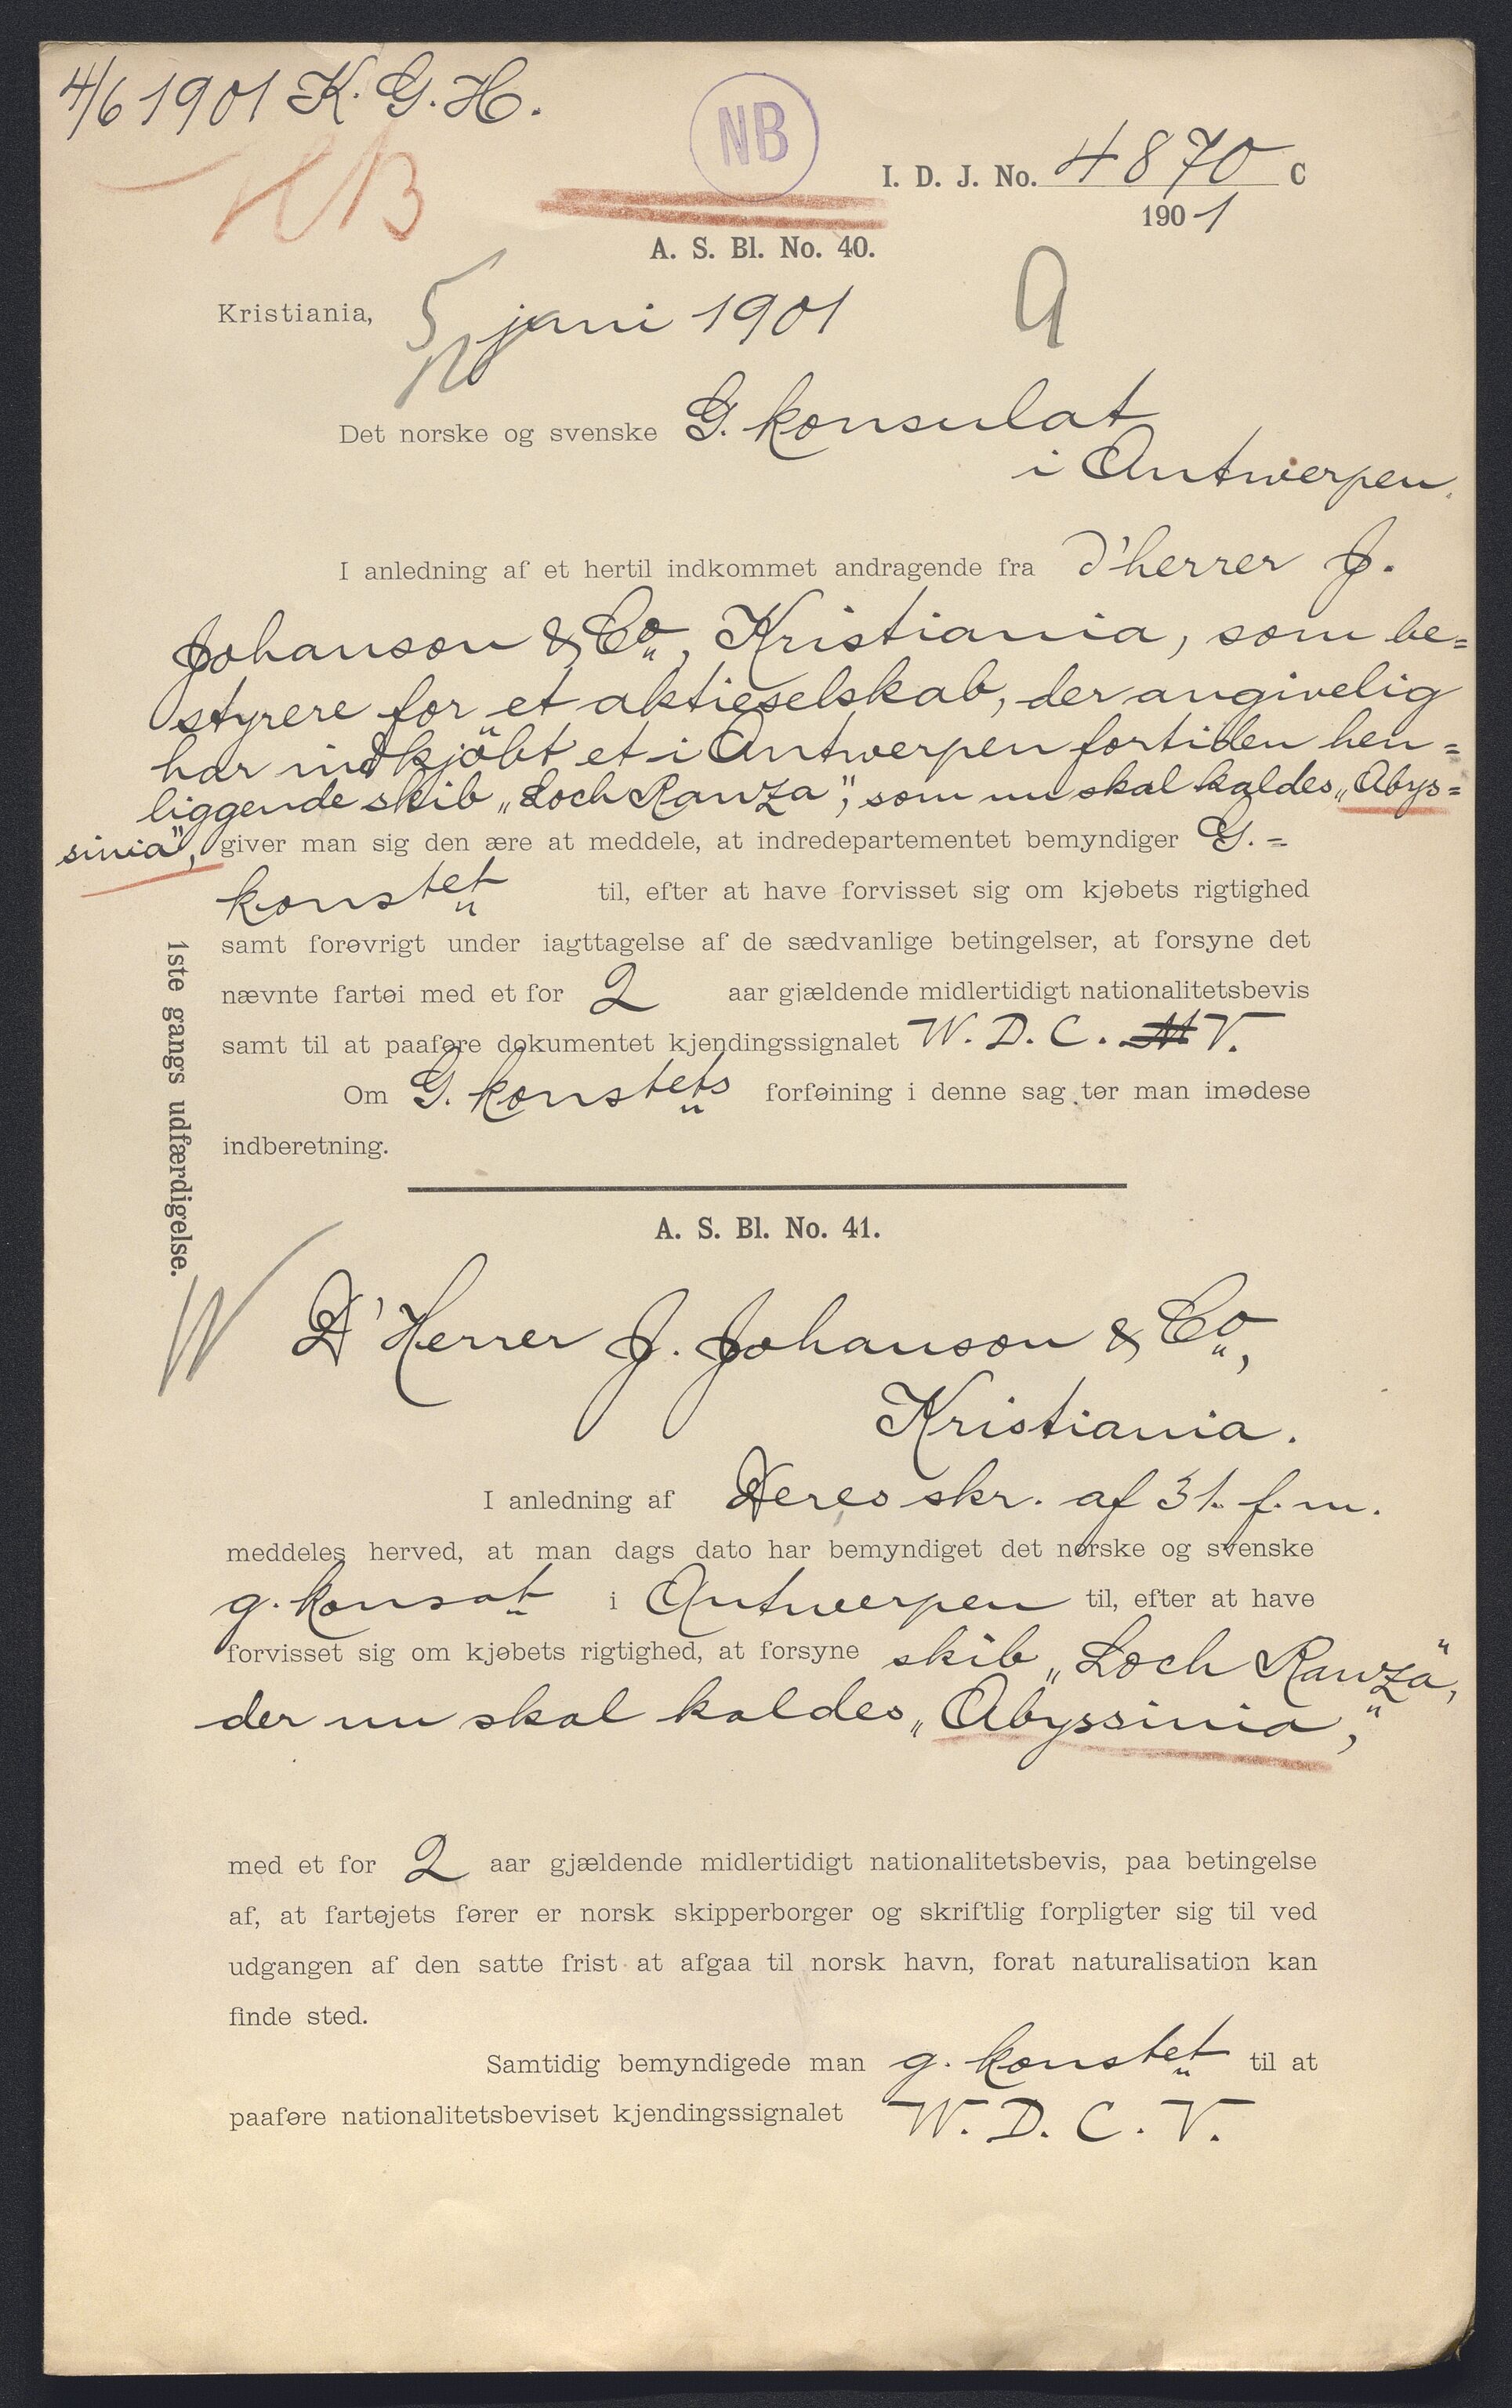 4/6 1901 K. G. H.
NB
NB
I. D. J. No. 4870 C
1901
A. S. Bl. No. 40.
Kristiania, 5 juni 1901
Det norske og svenske G. konsulat
i Antwerpen.
I anledning af et hertil indkommet andragende fra d'herrer J.
Johanson & Co, Kristiania, som be=
styrere for et aktieselskab, der angivelig
har indkjöbt et i Antwerpen fortiden hen=
liggende skib „Loch Ranza", som nu skal kaldes „Abys=
sinia", giver man sig den ære at meddele, at indredepartementet bemyndiger G.=
konstet til, efter at have forvisset sig om kjøbets rigtighed
samt forøvrigt under iagttagelse af de sædvanlige betingelser, at forsyne det
nævnte fartøi med et for 2 aar gjældende midlertidigt nationalitetsbevis
samt til at paaføre dokumentet kjendingssignalet W. D. C. V.
Om G. konstets forføining i denne sag tør man imødese
indberetning.
1ste gangs udfærdigelse.
A. S. Bl. No. 41.
D'Herrer J. Johanson & Co,
Kristiania.
I anledning af Deres skr. af 31. f. m.
meddeles herved, at man dags dato har bemyndiget det norske og svenske
g. konsat i Antwerpen til, efter at have
forvisset sig om kjøbets rigtighed, at forsyne skib „Loch Ranza",
der nu skal kaldes „Abyssinia",
med et for 2 aar gjældende midlertidigt nationalitetsbevis, paa betingelse
af, at fartøjets fører er norsk skipperborger og skriftlig forpligter sig til ved
udgangen af den satte frist at afgaa til norsk havn, forat naturalisation kan
finde sted.
Samtidig bemyndigede man g. konstet til at
paaføre nationalitetsbeviset kjendingssignalet W. D. C. V.